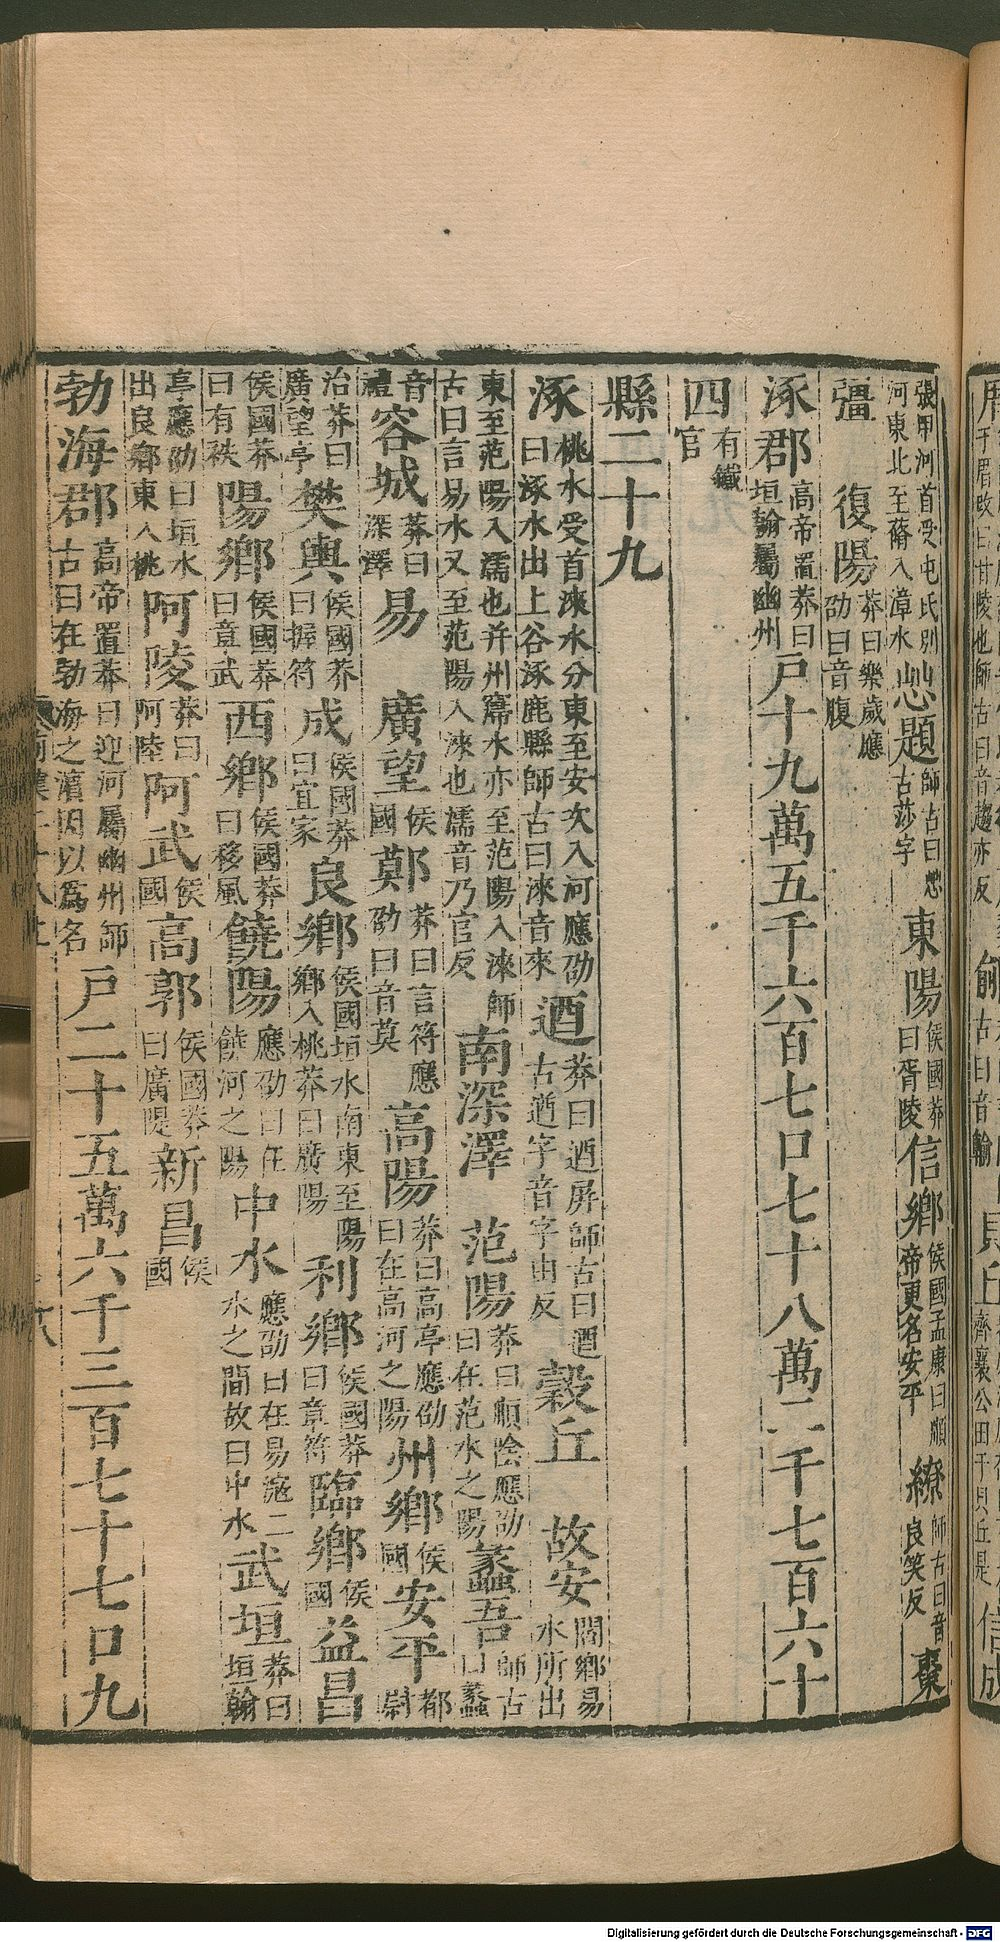 張甲河首受屯氏別河東北至蓨入漳水 㤅題師古曰㤅古莎字 東陽侯國莽曰胥陵 信鄉侯國孟康曰順帝更名安平 繚師古曰音良笑反 棗
彊 復陽莽曰樂歲應劭曰音腹
涿郡高帝置莽曰垣翰屬幽州 戶十九萬五千六百七口七十八萬二千七百六十
四有鐵官
縣二十九
涿桃水受首淶水分東至安次入河應劭曰涿水出上谷涿鹿縣師古曰淶音來 迺莽曰迺屏師古曰迺古遒字音字由反 穀丘 故安閻鄉易水所出
東至范陽入濡也并州㝱水亦至范陽入淶師古曰言易水又至范陽入淶也濡音乃官反 南深澤 范陽莽曰順陰應劭曰在范水之陽 蠡吾師古曰蠡
音禮 容城莽曰深澤 易 廣望侯國 鄚莽曰言符應劭曰音莫 高陽莽曰高亭應劭曰在高河之陽 州鄉侯國 安平都尉
治莽曰廣望亭 樊輿侯國莽曰握符 成侯國莽曰宜家 良鄉侯國垣水南東至陽鄉入桃莽曰廣陽 利鄉侯國莽曰章符 臨鄉侯國 益昌
侯國莽曰有袟 陽鄉侯國莽曰章武 西鄉侯國莽曰移風 饒陽應劭曰在饒河之陽 中水應劭曰在易滱二水之間故曰中水 武垣莽曰垣翰
亭應劭曰垣水出良鄉東入桃 阿陵莽曰阿陸 阿武侯國 高郭侯國莽曰廣隄 新昌侯國
勃海郡高帝置莽曰迎河屬幽州師古曰在勃海之濱因以爲名 戶二十五萬六千三百七十七口九
Digitalisierung gefördert durch die Deutsche Forschungsgemeinschaft - DFG